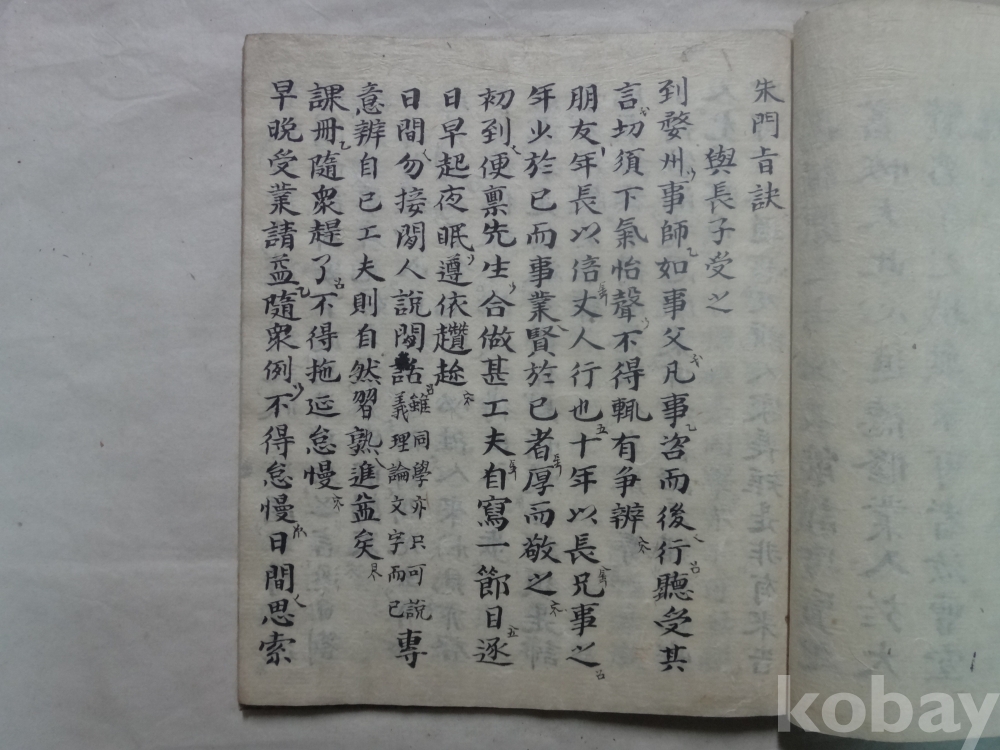 朱門旨訣
與長子受之
到婺州事師如事父凡事咨而後行聽受其
言切須下氣怡聲不得輒有争辨
朋友年長以倍丈人行也十年以長兄事之
年少於已而事業賢於已者厚而敬之
初到便禀先生合做甚工夫自寫一節目逐
日早起夜眠遵依趲趂
日間勿接閑人說閑話雖同學亦只可說義理論文字而已專
意辨自已工夫則自然習熟進益矣
課冊隨衆趕了不得拖延怠慢
早晚受業請益隨衆例不得怠慢日間思索
kobay